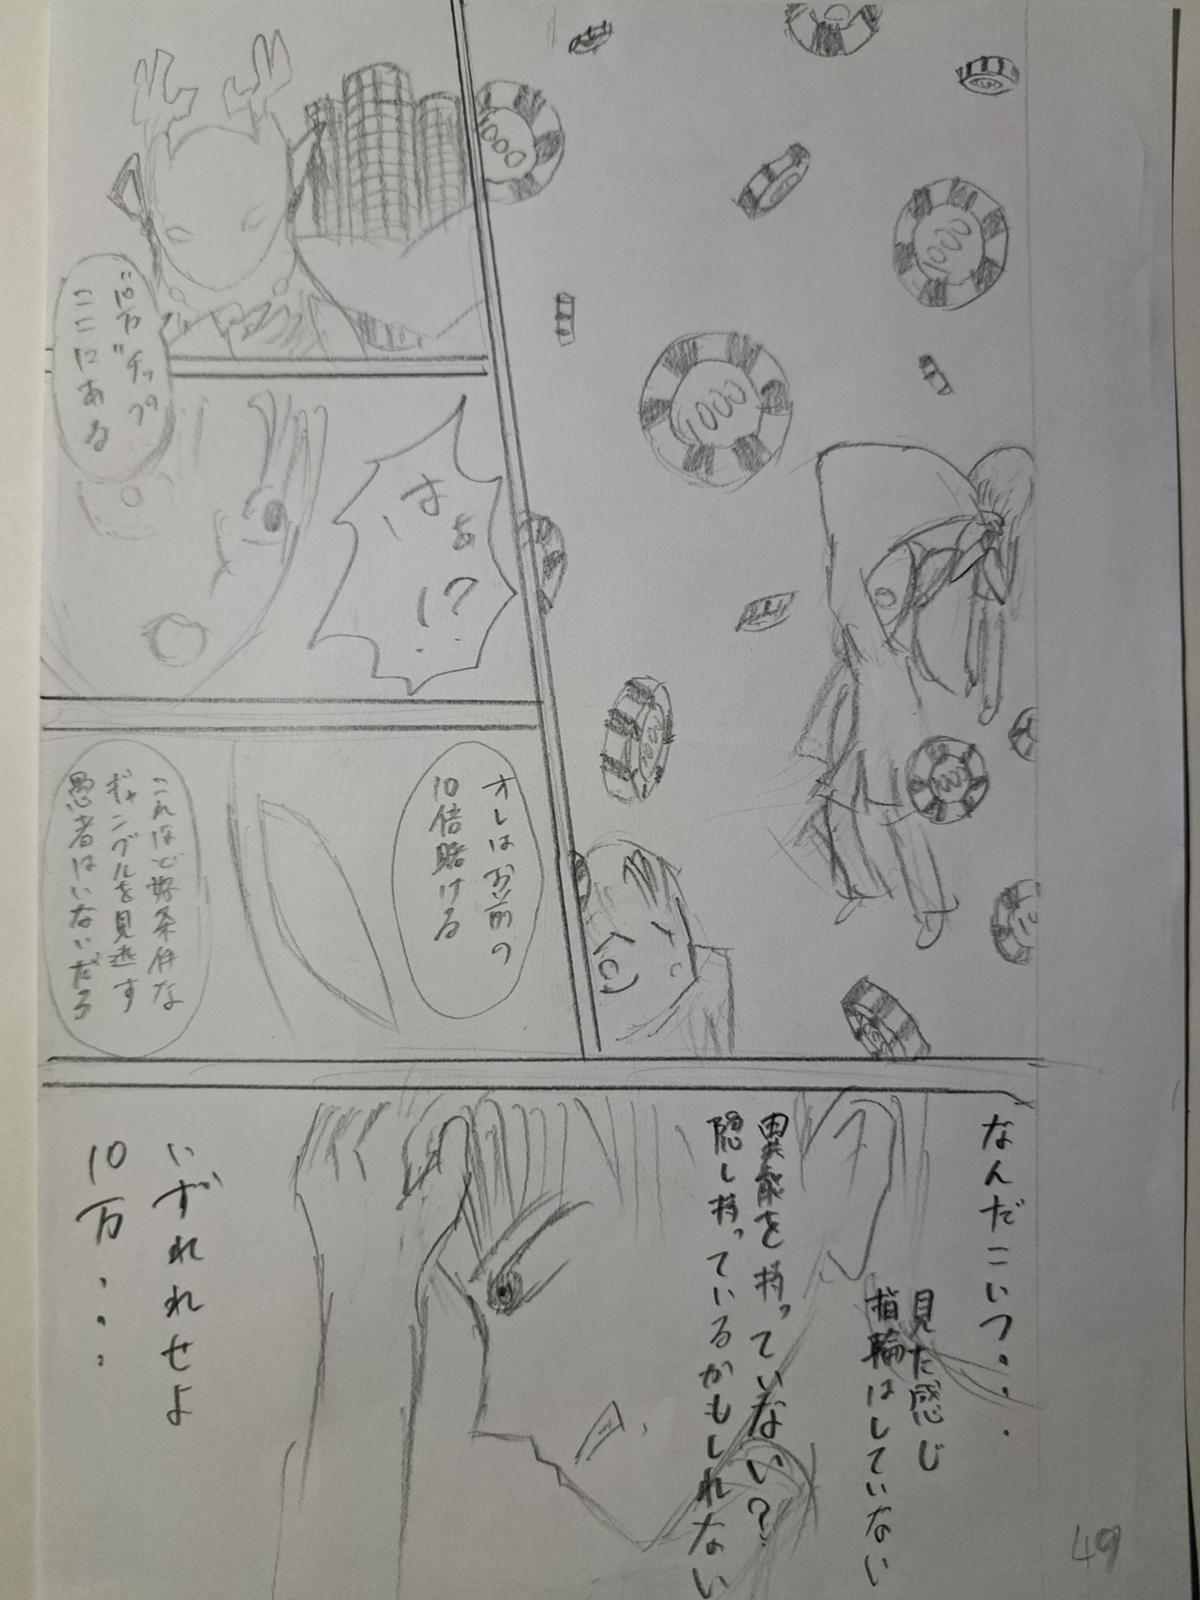 1000
1000
1000
"10万"チップ
ここにある
はぁ
!?
オレはお前の
10倍賭ける
これほど好条件な
ギャンブルを見逃す
愚者はいないだろ
なんだこいつ・・・
見た感じ
指輪はしていない
異能を持っていない?
隠し持っているかもしれない
いずれれせよ
10万・・・
49